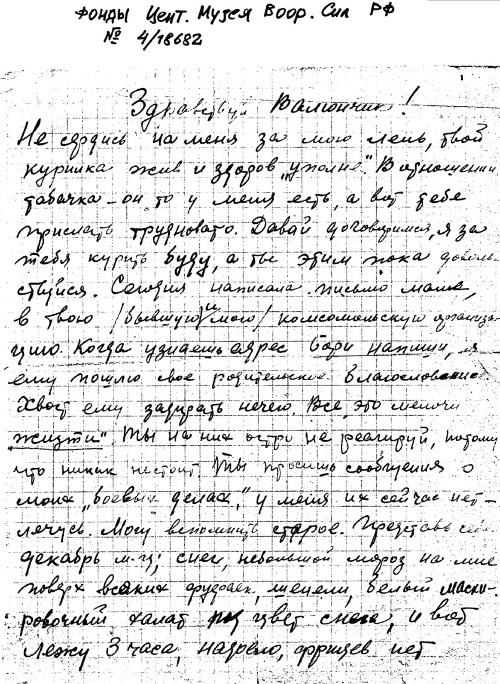 ФОНДЫ ЦЕНТ. МУЗЕЯ ВООР. СИЛ РФ
№ 4/18682
Здравствуй Валюнчик!
Не сердись на меня за мою лень, твой
курилка жив и здоров „уполне". В отношении
табачка – он то у меня есть, а вот тебе
прислать трудновато. Давай договоримся, я за
тебя курить буду, а ты этим пока доволь-
ствуйся. Сегодня написала письмо маме,
в твою /бывшую и мою/ комсомольскую организа-
цию. Когда узнаешь адрес Бори напиши, я
ему пошлю свое родительское благословение.
Хвост ему задирать нечего. Все это мелочи
жизти". Ты на них остро не реагируй, потому
что никак не стоит. Ты просишь сообщения о
моих „боевых делах," у меня их сейчас нет –
лечусь. Могу вспомнить старое. Представь себе
декабрь м-ц; снег, небольшой мороз на мне
поверх всяких фуфаек, шинели, белый маски-
ровочный халат под цвет снега, и вот
лежу 3 часа, надоело, фрицев нет